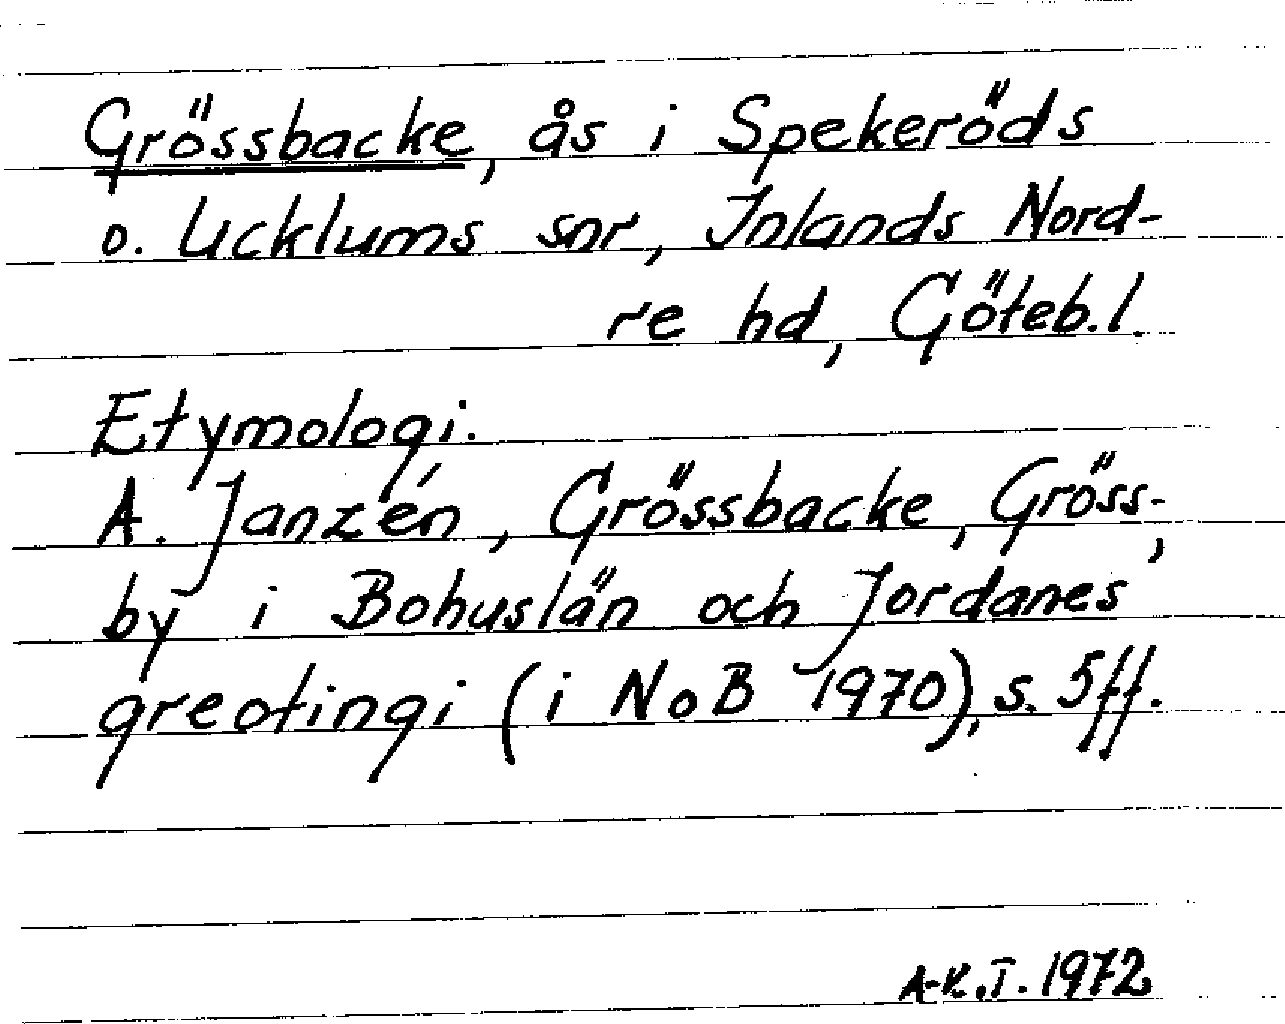 Grössbacke, ås i Spekeröds
o. Ucklums snr, Inlands Nord-
re hd, Göteb.l.
Etymologi.
A. Janzén, Grössbacke, Gröss-
by i Bohuslän och Jordanes'
greotingi (i NoB 1970), s. 5ff.
A-K.T. 1972